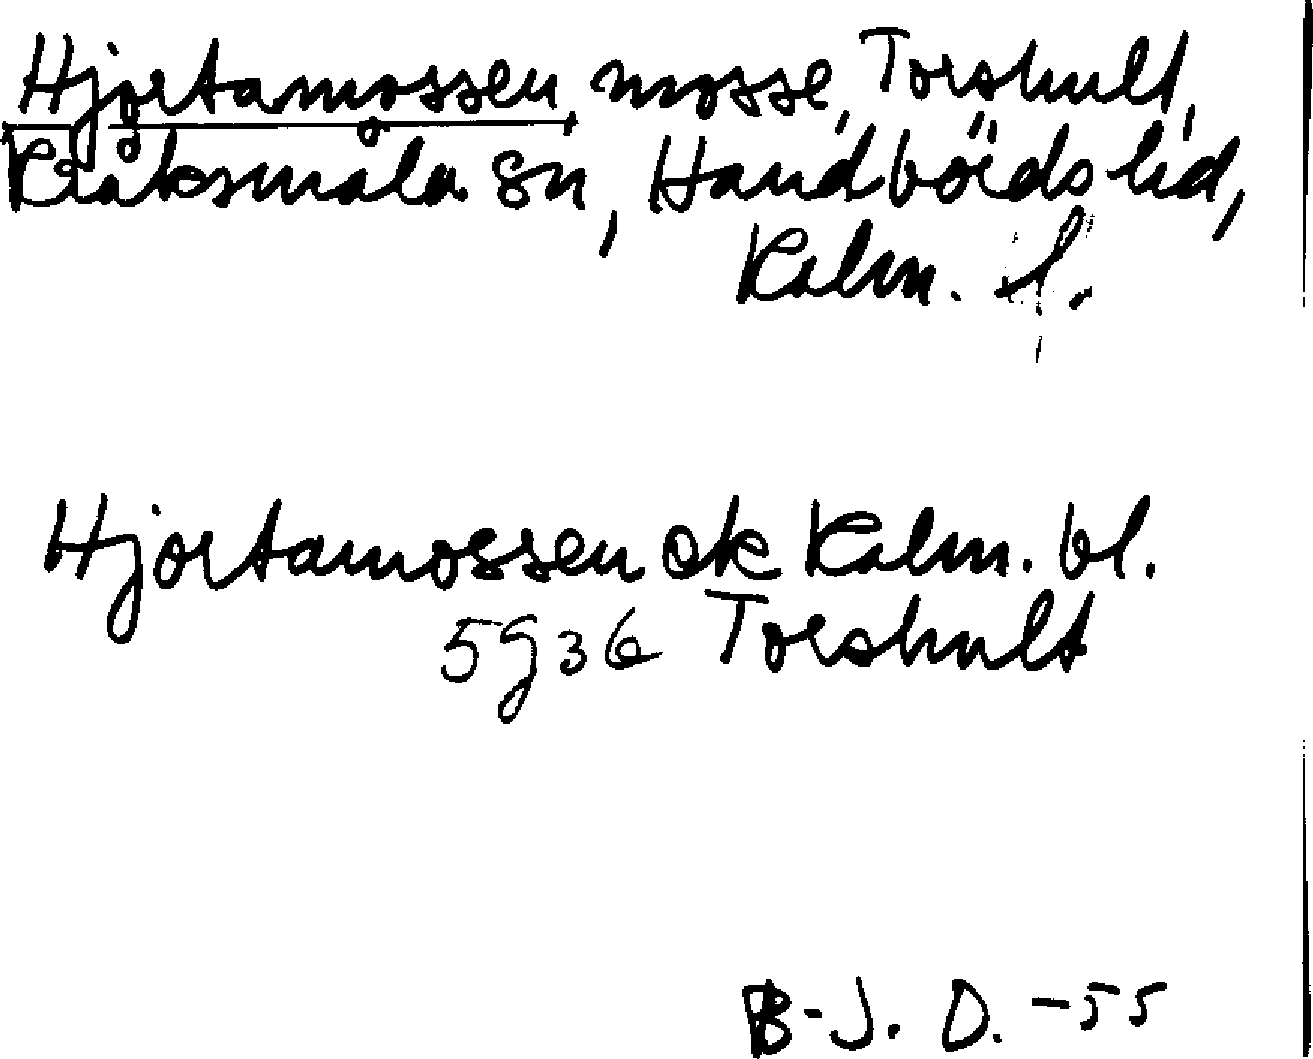 Hjortamossen, mosse, Torshult,
Kråksmåla sn, Handbörds hd,
Kalm. l.
Hjortamossen ek Kalm. bl.
5g36 Torshult
B-J. O. -55